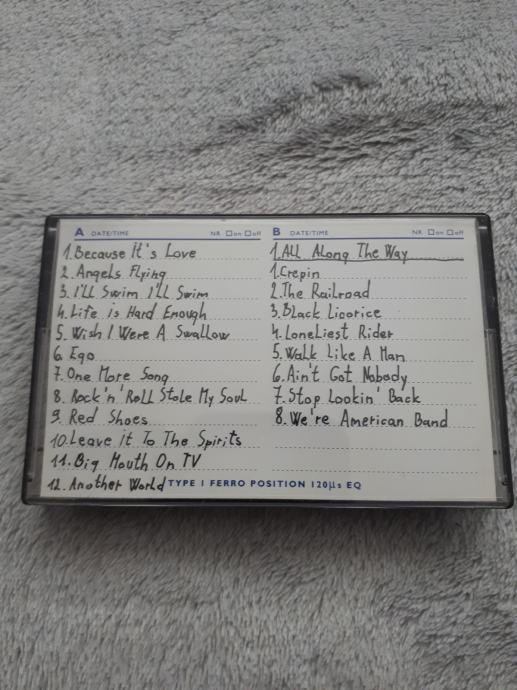 A DATE/TIME NR on off
1.Because It's Love
2.Angels Flying
3.I'LL Swim I'LL Swim
4.Life is Hard Enough
5.Wish I Were A Swallow
6.Ego
7.One More Song
8.Rock'n'Roll Stole My Soul
9.Red Shoes
10.Leave it To The Spirits
11.Big Mouth On TV
12.Another World
B DATE/TIME NR on off
1.All Along The Way
1.Crepin
2.The Railroad
3.Black Licorice
4.Loneliest Rider
5.Walk Like A Man
6.Ain't Got Nobody
7.Stop Lookin' Back
8.We're American Band
TYPE I FERRO POSITION 120µs EQ